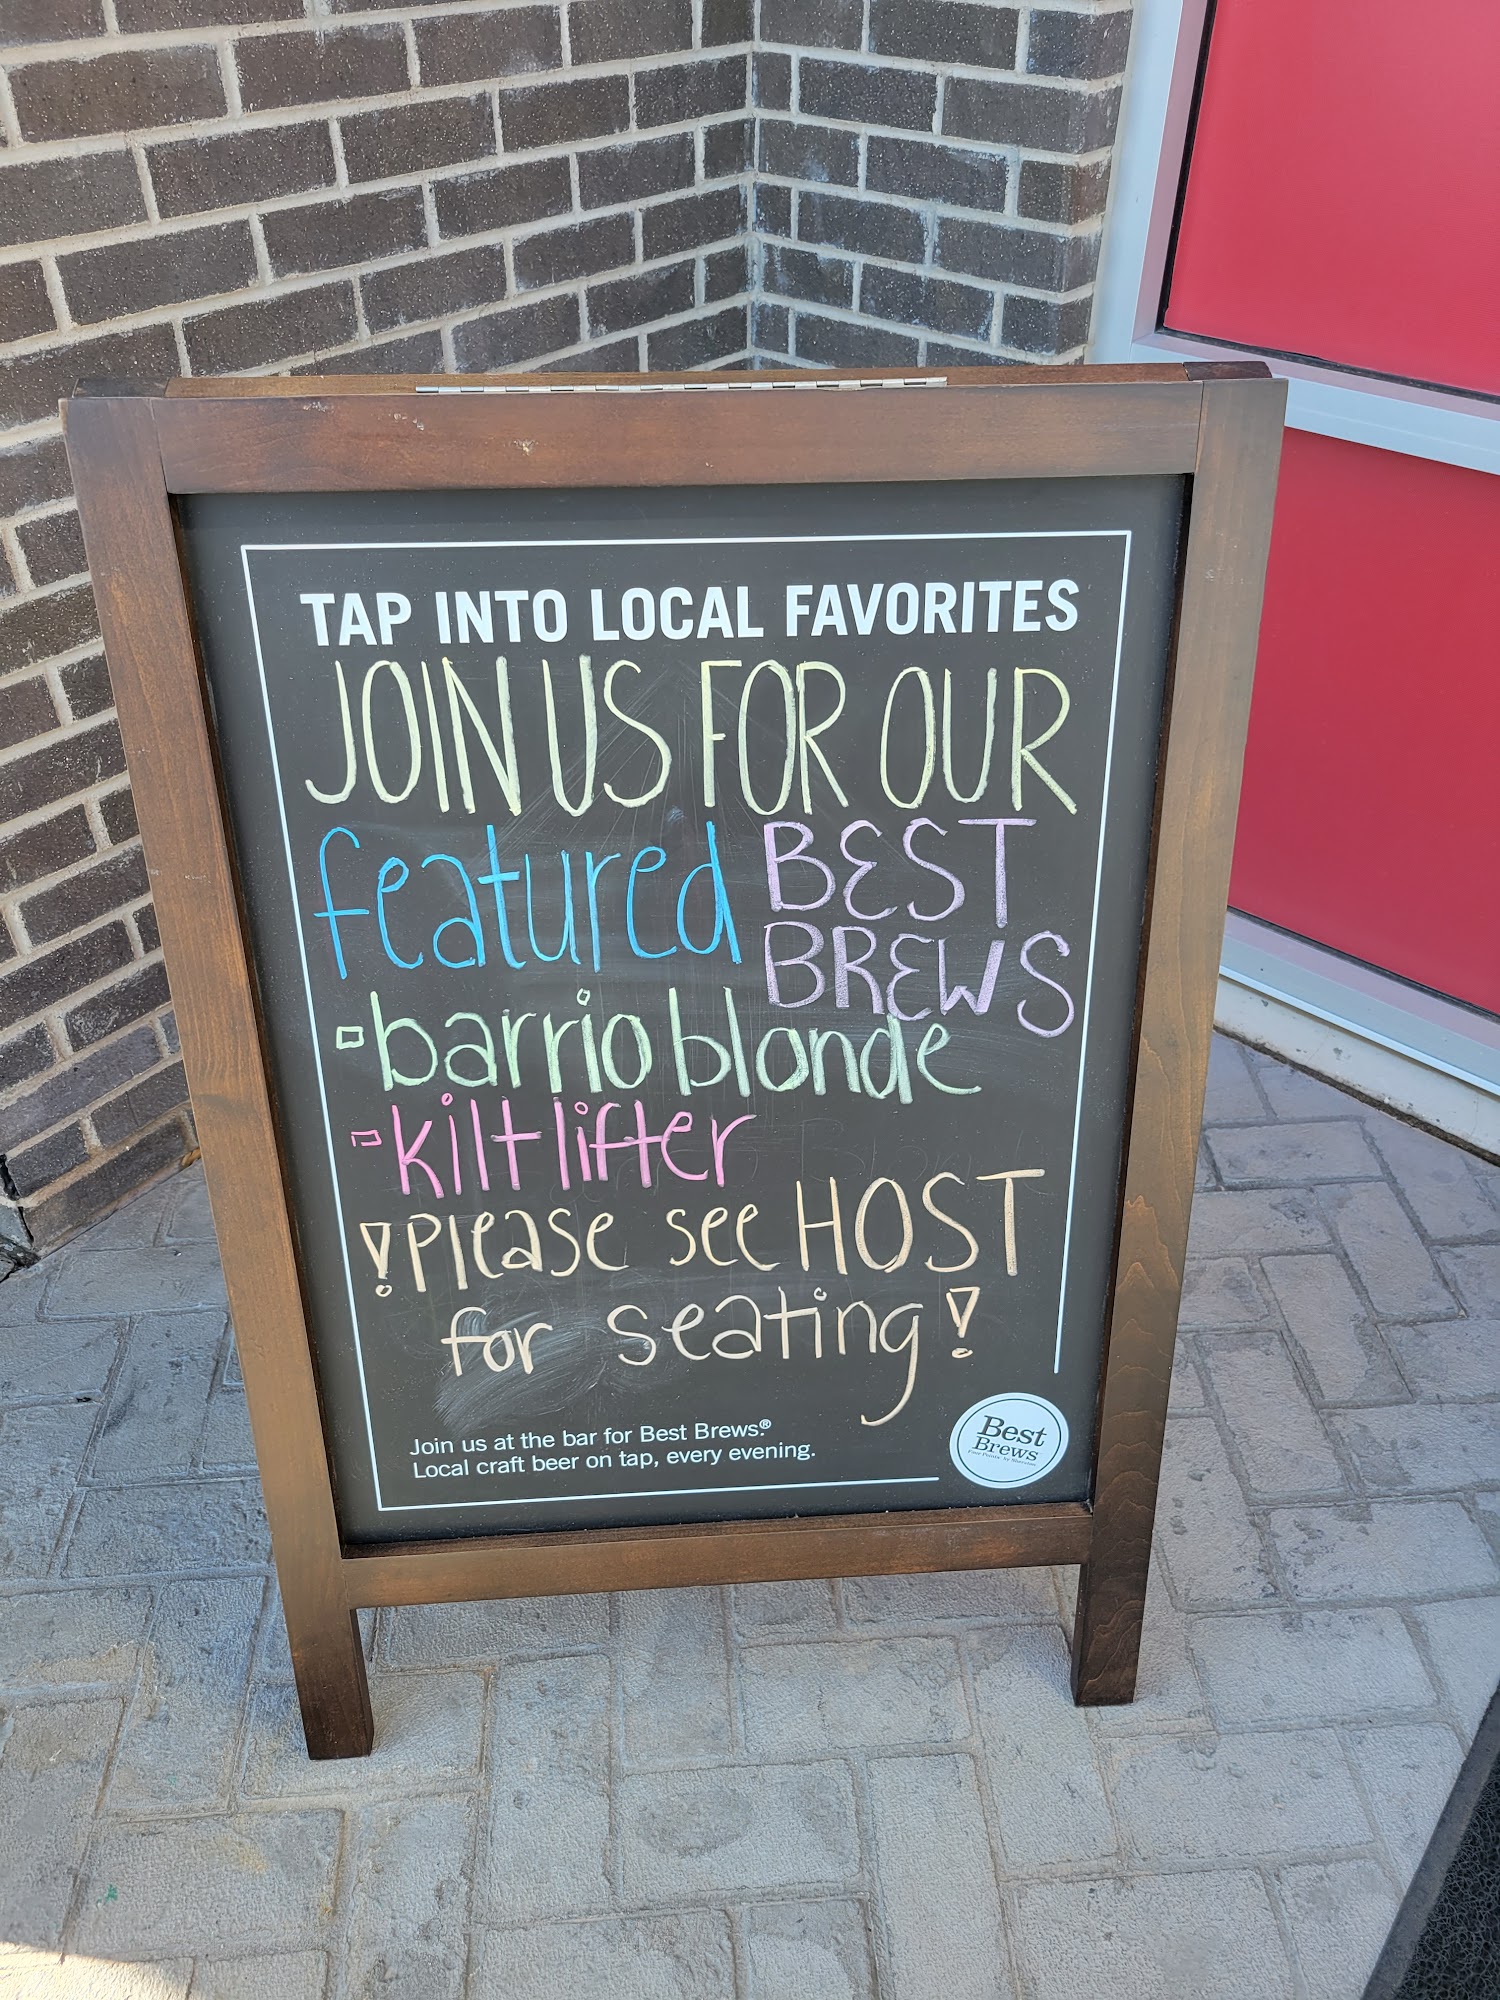 TAP INTO LOCAL FAVORITES
JOIN US FOR OUR
featured BEST
BREWS
barrio blonde
kilt lifter
!Please see HOST
for seating!
Join us at the bar for Best Brews.®
Local craft beer on tap, every evening.
Best
Brews
Four Points by Sheraton